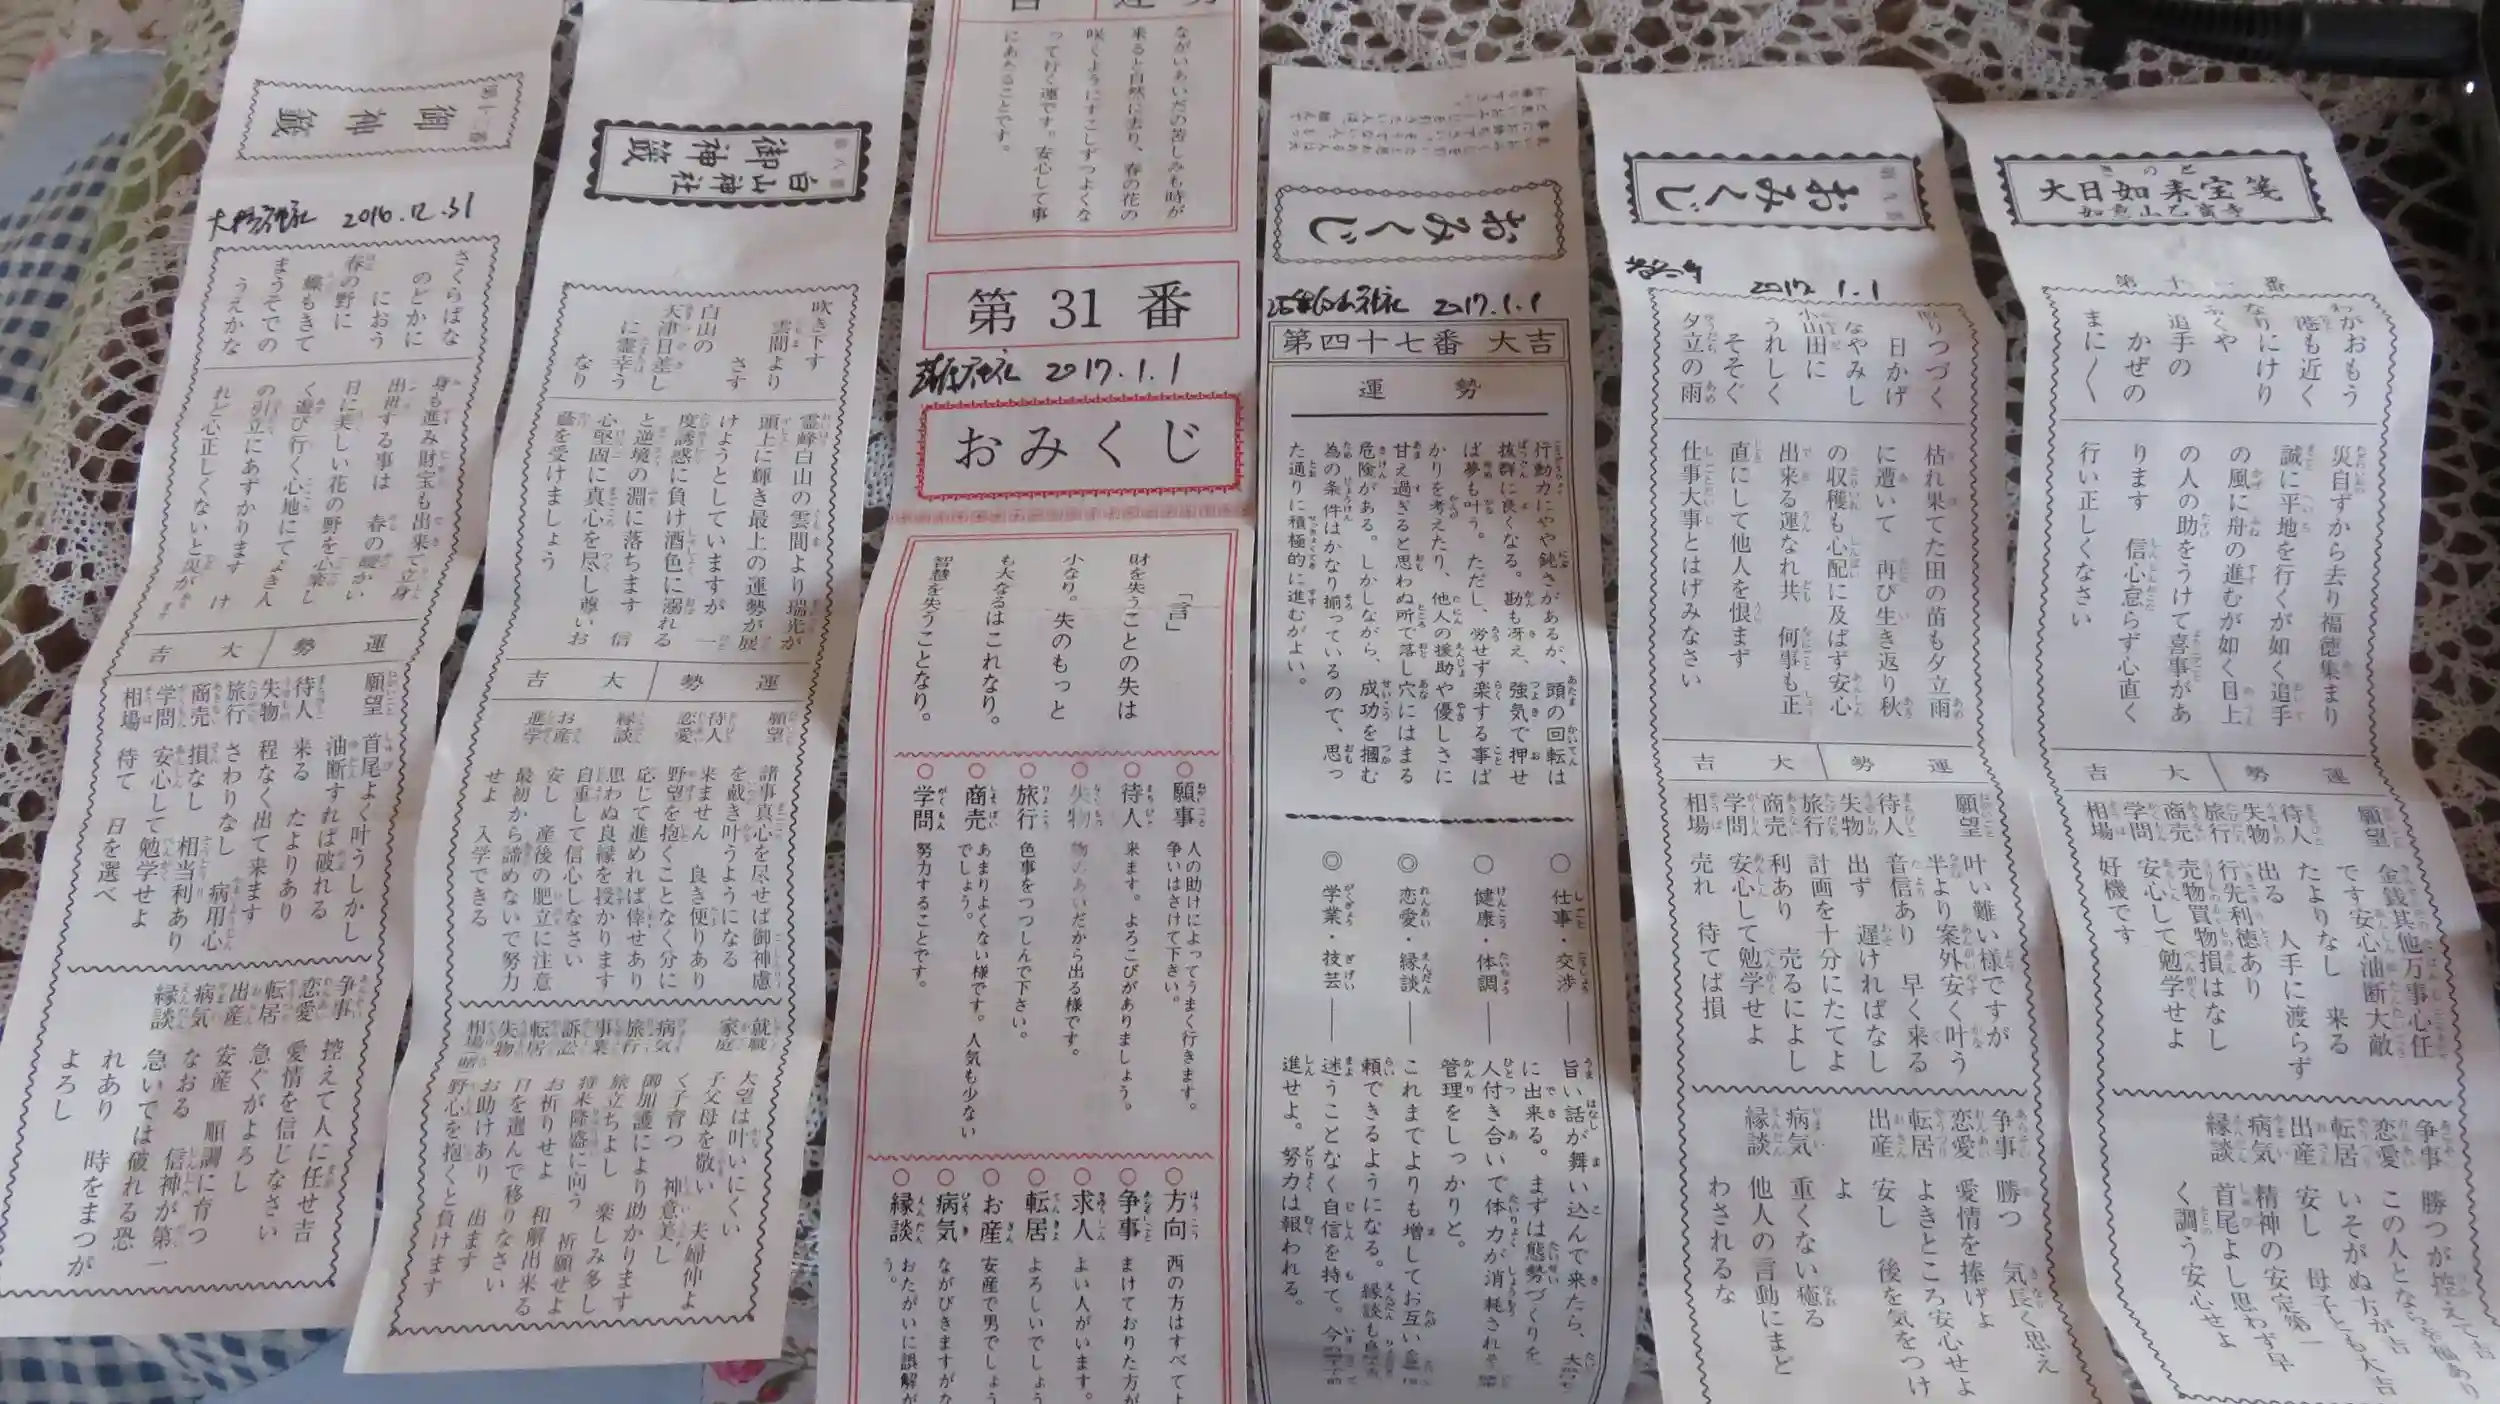 第十二番
御神籤
2016.12.31
さくらばな
のどかに
におう
春の野に
蝶もきて
まうそでの
うえかな
身も進み財宝も出来て立身
出世する事は 春の暖かい
日に美しい花の野を心楽し
く遊び行く心地にて
の引立にあずかります け
れど心正しくないと災があ
運勢 大吉
願望 首尾よく叶うしかし
油断すれば破れる
待人 来る たよりあり
失物 程なく出て来ます
旅行 さわりなし 病用心
商売 損なし 相当利あり
学問 安心して勉学せよ
相場 待て 日を選べ
争事 控えて人に任せ吉
恋愛 愛情を信じなさい
転居 急ぐがよろし
出産 安産 順調に育つ
病気 なおる 信神が第一
縁談 急いでは破れる恐
れあり 時をまつが
よろし
第八番
白山神社
御神籤
吹き下す
雲間より
さす
白山の
天津日差し
に霊幸う
なり
霊峰白山の雲間より瑞光が
頭上に輝き最上の運勢が展
けようとしていますが 一
度誘惑に負け酒色に溺れる
と逆境の淵に落ちます 信
心堅固に真心を尽し尊いお
蔭を受けましょう
運勢 大吉
願望 諸事真心を尽せば御神慮
を戴き叶うようになる
待人 来ません 良き便りあり
恋愛 野望を抱くことなく分に
応じて進めれば倖せあり
縁談 思わぬ良縁を授かります
自重して信心しなさい
お産 安し 産後の肥立に注意
進学 最初から諦めないで努力
せよ 入学できる
就職 大望は叶いにくい
家庭 子父母を敬い 夫婦仲よ
く子育つ 神意美し
病気 御加護により助かります
旅行 旅立ちよし 楽しみ多し
事業 将来隆盛に向う
訴訟 お祈りせよ 和解出来る
転居 日を選んで移りなさい
失物 お助けあり 出ます
相場 野心を抱くと負けます
運勢
ながいあいだの苦しみも時が
来ると自然に去り、春の花の
咲くようにすこしずつよくな
って行く運です。安心して事
にあたることです。
第31番
2017.1.1
おみくじ
「言」
財を失うことの失は
小なり。失のもっと
も大なるはこれなり。
智慧を失うことなり。
○願事 人の助けによってうまく行きます。
争いはさけて下さい。
○待人 来ます。よろこびがありましょう。
○失物 物のあいだから出る様です。
○旅行 色事をつつしんで下さい。
○商売 あまりよくない様です。人気も少ない
でしょう。
○学問 努力することです。
○方向 西の方はすべてよ
○争事 まけておりた方が
○求人 よい人がいます。
○転居 よろしいでしょう
○お産 安産で男でしょう
○病気 ながびきますがな
○縁談 おたがいに誤解が
う。
おみくじ
2017.1.1
第四十七番 大吉
運勢
行動力にやや鈍さがあるが、頭の回転は
抜群に良くなる。勘も冴え、強気で押せ
ば夢も叶う。ただし、労せず楽する事ば
かりを考えたり、他人の援助や優しさに
甘え過ぎると思わぬ所で落し穴にはまる
危険がある。しかしながら、成功を摑む
為の条件はかなり揃っているので、思っ
た通りに積極的に進むがよい。
○仕事・交渉―旨い話が舞い込んで来たら、
に出来る。まずは態勢づくりを
○健康・体調―人付き合いで体力が消耗されそ
管理をしっかりと。
◎恋愛・縁談―これまでよりも増してお互い
頼できるようになる。縁談も
◎学業・技芸―迷うことなく自信を持て。今
進せよ。努力は報われる。
第九番
おみくじ
2017.1.1
照りつづく
日かげ
なやみし
小山田に
うれしく
そそぐ
夕立の雨
枯れ果てた田の苗も夕立雨
に遭いて 再び生き返り秋
の収穫も心配に及ばず安心
出来る運なれ共 何事も正
直にして他人を恨ます
仕事大事とはげみなさい
運勢 大吉
願望 叶い難い様ですが
半より案外安く叶う
待人 音信あり 早く来る
失物 出ず 遅ければなし
旅行 計画を十分にたてよ
商売 利あり 売るによし
学問 安心して勉学せよ
相場 売れ 待てば損
争事 勝つ 気長く思え
恋愛 愛情を捧げよ
転居 よきところ安心せよ
出産 安し 後を気をつけ
よ
病気 重くない癒る
縁談 他人の言動にまど
わされるな
きのと
大日如来宝箋
如意山乙宝寺
第十一番
わがおもう
港も近く
なりにけり
ふくや
追手の
かぜの
まに〱
災自ずから去り福徳集まり
誠に平地を行くが如く追手
の風に舟の進むが如く目上
の人の助をうけて喜事があ
ります 信心怠らず心直く
行い正しくなさい
運勢 大吉
願望 金銭其他万事心任
です安心油断大敵
待人 たよりなし 来る
失物 出る 人手に渡らず
旅行 行先利徳あり
商売 売物買物損はなし
学問 安心して勉学せよ
相場 好機です
争事 勝つが控えて吉
恋愛 この人となら幸福あり
転居 いそがぬ方が吉
出産 安し 母子とも大吉
病気 精神の安定第一
縁談 首尾よし思わず早
く調う安心せよ